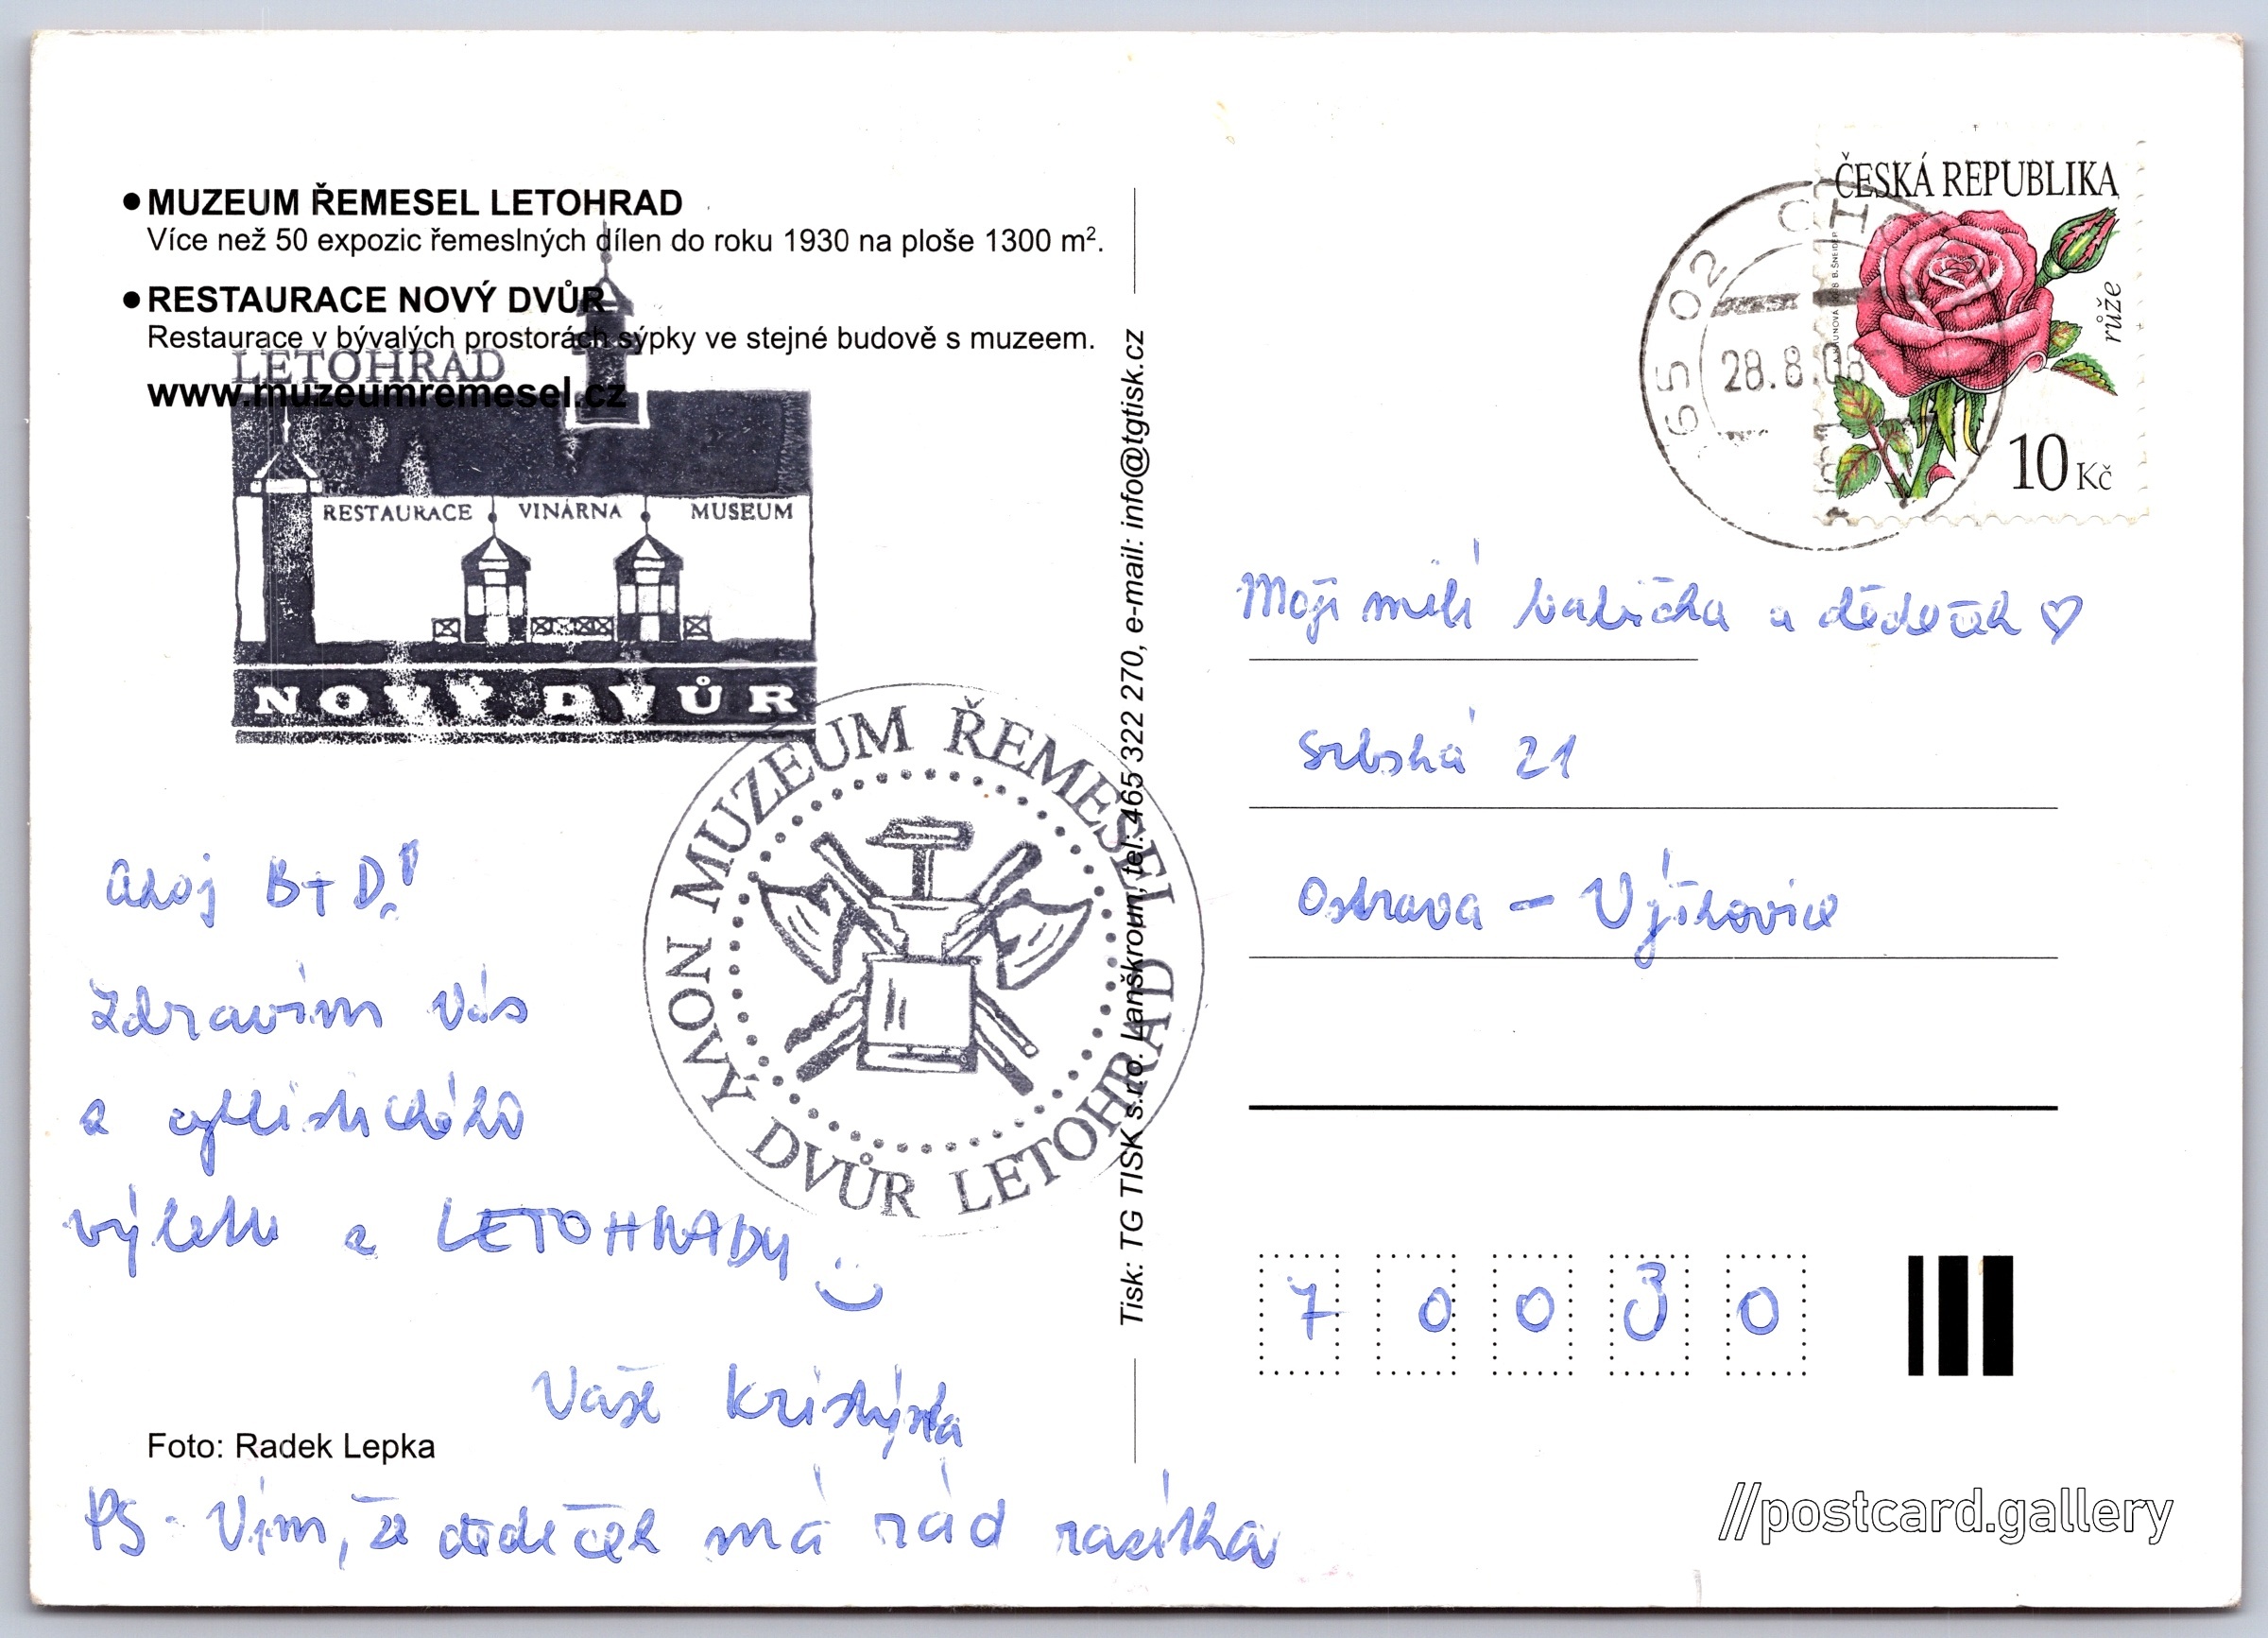 ● MUZEUM ŘEMESEL LETOHRAD
Více než 50 expozic řemeslných dílen do roku 1930 na ploše 1300 m².
● RESTAURACE NOVÝ DVŮR
Restaurace v bývalých prostorách sýpky ve stejné budově s muzeem.
www.muzeumremesel.cz
LETOHRAD
RESTAURACE VINÁRNA MUSEUM
NOVÝ DVŮR
MUZEUM ŘEMESEL
NOVÝ DVŮR LETOHRAD
Ahoj B+D!
Zdravím Vás
z cyklistického
výletu z LETOHRADU
Vaše Kristýnka
Foto: Radek Lepka
PS - Vím, že dědeček má rád razítka
Tisk: TG TISK s.r.o. Lanškroun, tel: 465 322 270, e-mail: info@tgtisk.cz
ČESKÁ REPUBLIKA
růže
10 Kč
65 02
28.8.08
Moji milí babička a dědeček ♡
Srbská 21
Ostrava - Výškovice
7 0 0 3 0
//postcard.gallery